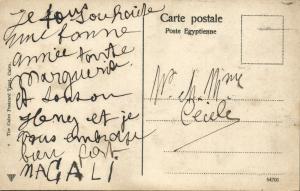 Je vous souhaite
une bonne
année tante
Marguerite
et tonton
Henez et je
vous embrasse
bien fort
MAGALI
Carte postale
Poste Egyptienne
Mme
Cécile
The Cairo Postcard Trust, Cairo.
54701